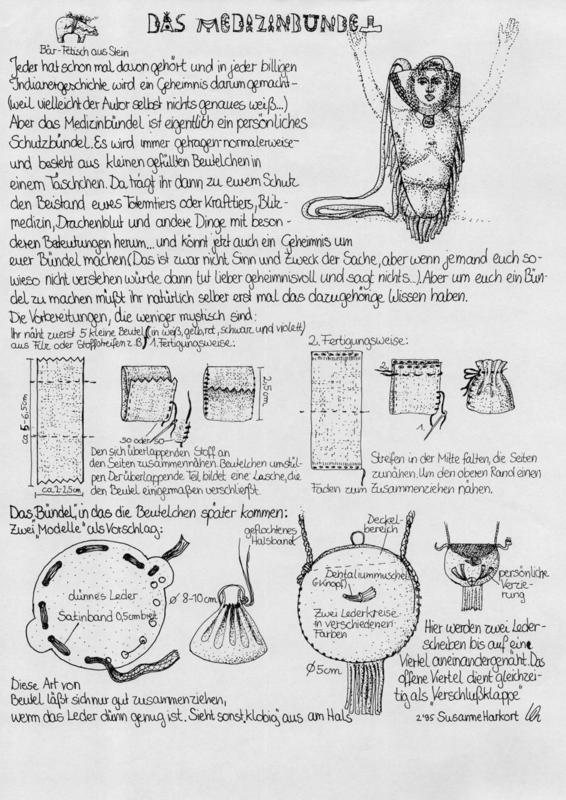 DAS MEDIZINBÜNDEL
Bär-Fetisch aus Stein
Jeder hat schon mal davon gehört und in jeder billigen
Indianergeschichte wird ein Geheimnis darum gemacht-
(weil vielleicht der Autor selbst nichts genaues weiß...)
Aber das Medizinbündel ist eigentlich ein persönliches
Schutzbündel. Es wird immer getragen-normalerweise-
und besteht aus kleinen gefüllten Beutelchen in
einem Täschchen. Da tragt ihr dann zu eurem Schutz
den Beistand eures Totemtiers oder Krafttiers, Blitz-
medizin, Drachenblut und andere Dinge mit beson-
deren Bedeutungen herum... und könnt jetzt auch ein Geheimnis um
euer Bündel machen (Das ist zwar nicht Sinn und Zweck der Sache, aber wenn jemand euch so-
wieso nicht verstehen würde dann tut lieber geheimnisvoll und sagt nichts...). Aber um euch ein Bün-
del zu machen müßt ihr natürlich selber erst mal das dazugehörige Wissen haben.
Die Vorbereitungen, die weniger mystisch sind:
Ihr näht zuerst 5 kleine Beutel (in weiß, gelb, rot, schwarz und violett)
aus Filz oder Stoffstreifen z.B.
1. Fertigungsweise:
2. Fertigungsweise:
ca 5-6,5cm
ca. 2-2,5cm
so oder so
2,5cm
2.
1.
Den sich überlappenden Stoff an
den Seiten zusammennähen. Beutelchen umstül-
pen. Der überlappende Teil bildet eine Lasche, die
den Beutel einigermaßen verschließt.
Streifen in der Mitte falten, die Seiten
zunähen. Um den oberen Rand einen
Faden zum Zusammenziehen nähen.
Das „Bündel", in das die Beutelchen später kommen:
Zwei „Modelle" als Vorschlag:
dünnes Leder
Satinband 0,5cm breit
ø 8-10cm
geflochtenes
Halsband
Deckel-
bereich
Dentaliummuschel
(Knopf)
Zwei Lederkreise
in verschiedenen
Farben
ø 5cm
persönliche
Verzie-
rung
Hier werden zwei Leder-
scheiben bis auf eine
Viertel aneinandergenäht. Das
offene Viertel dient gleichzei-
tig als „Verschlußklappe"
Diese Art von
Beutel läßt sich nur gut zusammenziehen,
wenn das Leder dünn genug ist. Sieht sonst „klobig" aus am Hals
2'95 Susanne Harkort